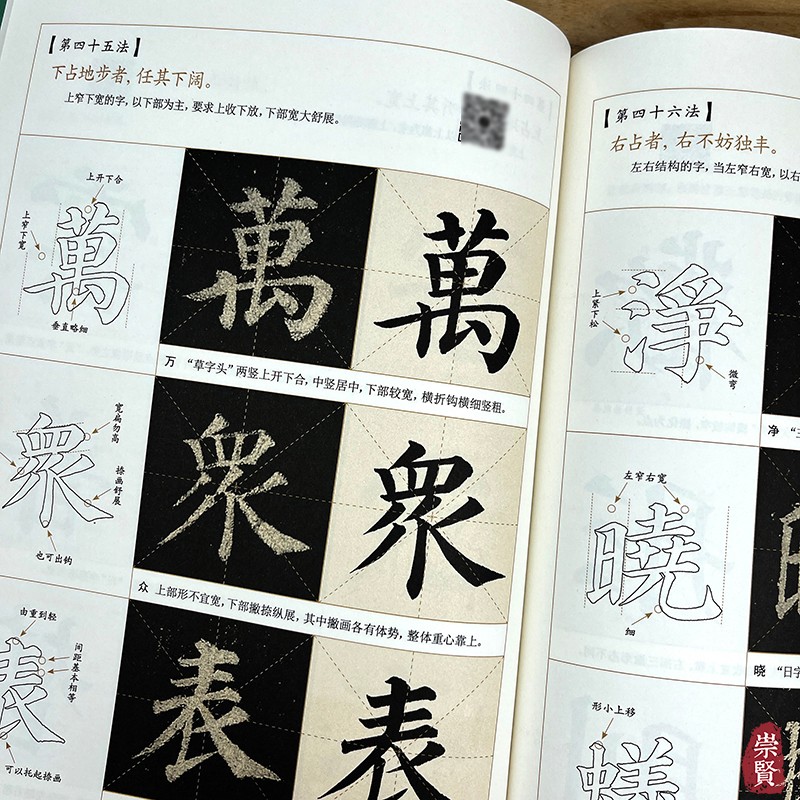 【第四十五法】
下占地步者，任其下阔。
上窄下宽的字，以下部为主，要求上收下放，下部宽大舒展。
上开下合
上窄下宽
萬
垂直略细
萬
萬
万 “草字头”两竖上开下合，中竖居中，下部较宽，横折钩横细竖粗。
宽扁勿高
衆
捺画舒展
也可出钩
衆
衆
众 上部形不宜宽，下部撇捺纵展，其中撇画各有体势，整体重心靠上。
由重到轻
表
间距基本相等
可以托起捺画
表
表
【第四十六法】
右占者，右不妨独丰。
左右结构的字，当左窄右宽，以右
上紧下松
淨
微弯
净
左窄右宽
曉
细
晓 “日字
形小上移
崇賢